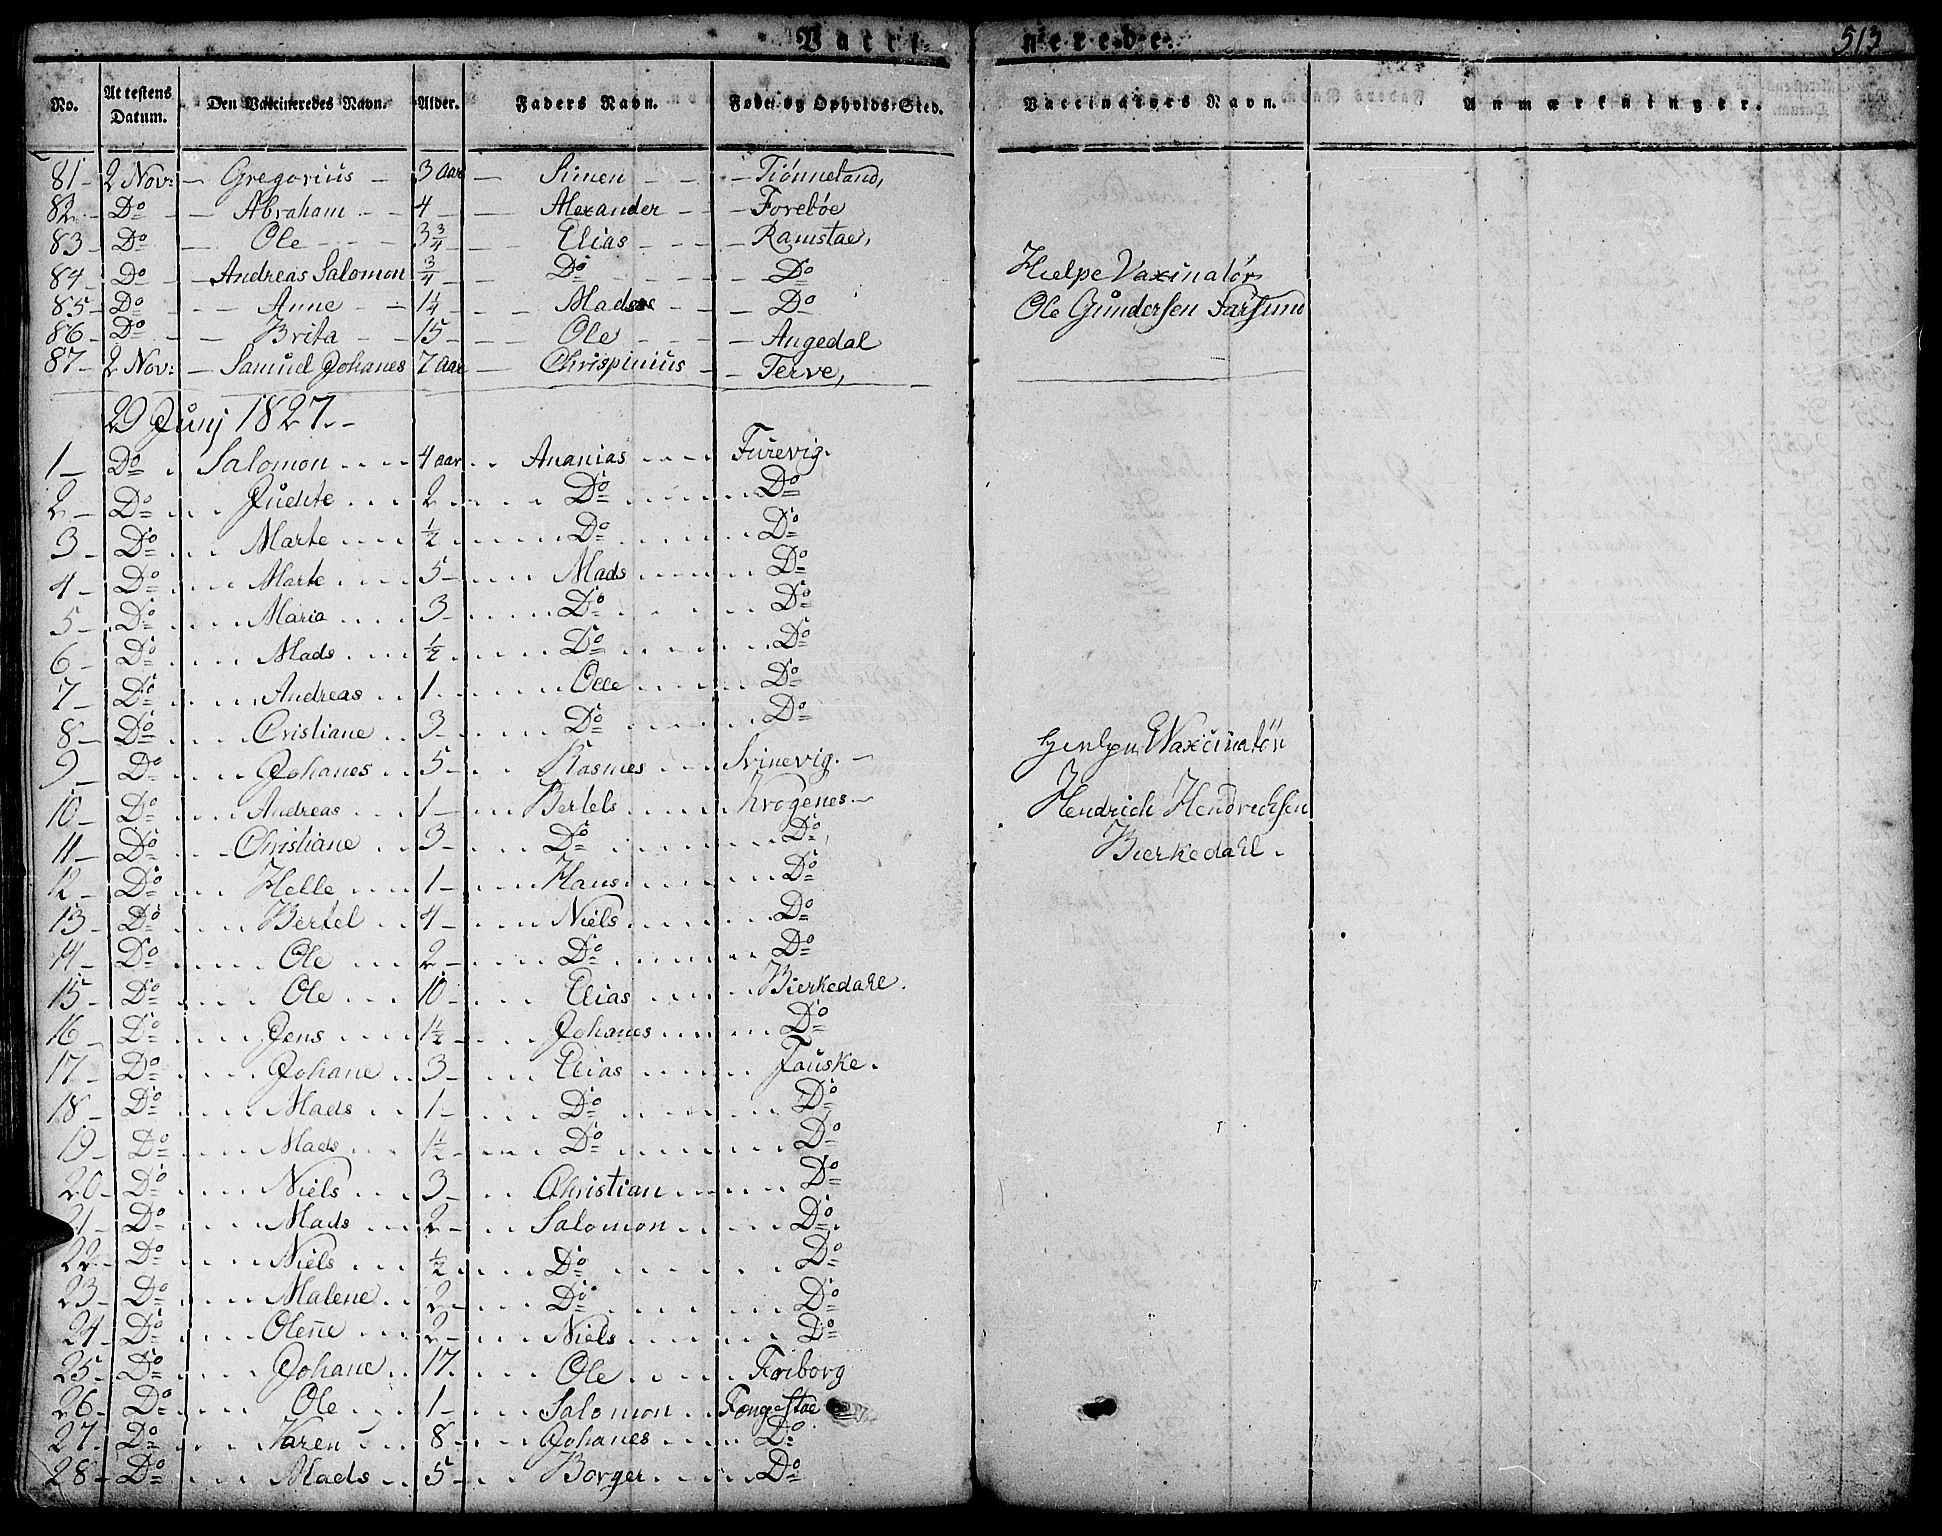 Vacci- nerede. 513
No. Attestens Datum. Den Vaccineredes Navn. Alder. Faders Navn. Føde- og Opholds-Sted. Vaccinators Navn. Anmærkninger.
81 - 2 Nov: - Gregorius - 3 Aar - Simen - - - Tiønneland,
82 - Do - - Abraham - - 4 - - Alexander - - Forebøe
83 - Do - Ole - - - 3 3/4 - - Elias - - - Ramstae,
84 - Do - - Andreas Salomon 3/4 - - Do - - - Do
Hielpe Vaxinatør
85 - Do - - Anne - - 1 1/4 - - Mads - - - Do
Ole Gundersen Farsund
86 - Do - - Brita - - 15 - - Ole - - - Angedal
87 - 2 Nov: - Samuel Johanes 7 Aar - Chrispinius - - Terve,
29 Junj 1827. -
1 - Do . Salomon .... 4 aar . . Ananias .... Furevig.
2 - Do ... Judite ... 2 - .... Do .... Do
3 - Do ... Marte .... 1/2 .... Do .... Do
4 - Do .... Marte .... 5 - .... Mads .... Do
5 - Do .... Maria .... 3 - .... Do .... Do
6 - Do .... Mads .... 1/2 .... Do .... Do
7 - Do .... Andreas .. 1 .... Olle .... Do
8 - Do .... Cristiane .. 3 - .... Do .... Do
Waxcinatör
9 - Do .... Johanes .. 5 - ... Rasmes ... Svinevig. -
10 - Do .... Andreas ... 1 - ... Bertels ... Krogenes. -
Hendrich Hendrechsen
11 - Do ... Christiane .. 3 - ... Do .... Do
Bierkedahl.
12 - Do .... Helle .... 1 - .... Hans .... Do
13 - Do .... Bertel ... 4 - .... Niels .... Do
14 - Do .... Ole ... 2 - .... Do .... Do
15 - Do .... Ole ... 10 - .... Elias .... Bierkedahl.
16 - Do .... Jens ... 1 1/2 .... Johanes .... Do
17 - Do .... Johane .. 3 - .... Elias .... Fauske.
18 - Do .... Mads .. 1 - .... Do .... Do
19 - Do .... Mads ... 1 1/2 .... Do .... Do
20 - Do .... Niels ... 3 - ... Christian .... Do
21 - Do .... Mads .. 2 - ... Salomon .... Do.
22 - Do .... Niels ... 1/2 .... Do .... Do
23 - Do .... Malene .. 2 - .... Do .... Do
24 - Do .... Olene ... 2 - .... Niels .... Do
25 - Do .... Johane .. 17 .... Ole .... Friborg
26 - Do .... Ole ... 1 - .... Salomon .. Fongestae
27. Do .... Karen .. 8 .... Johanes .... Do
28 - Do .... Mads .. 5 - .... Borger .... Do